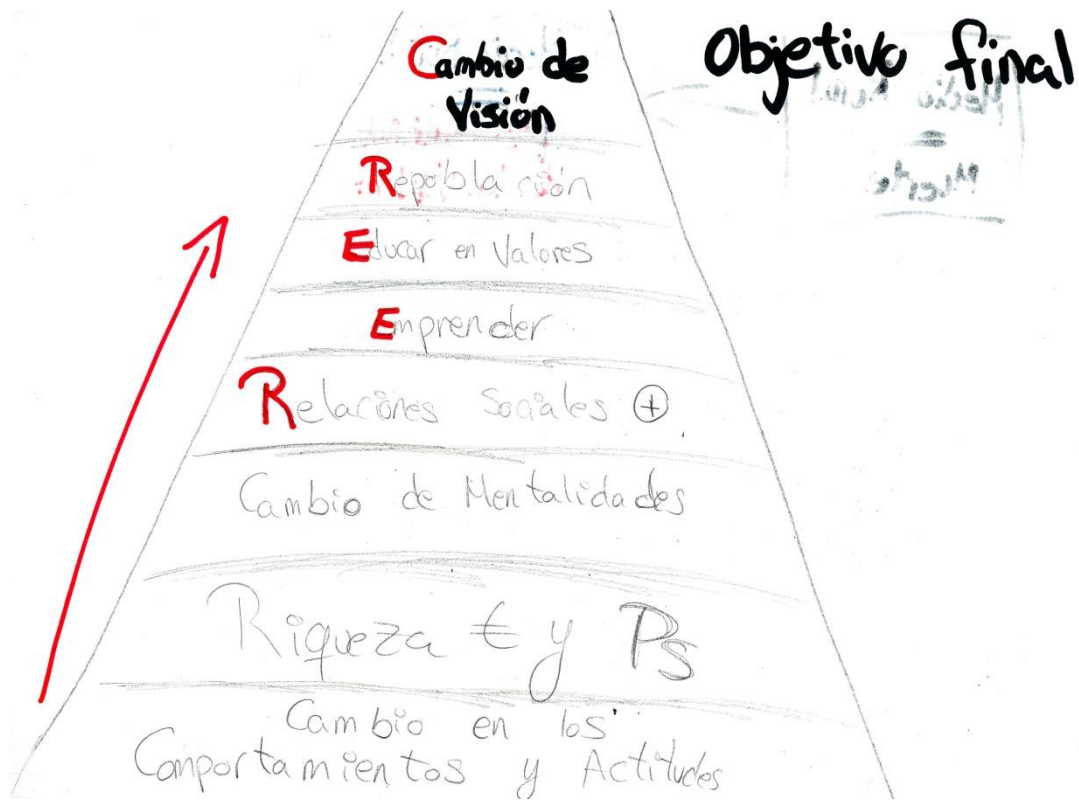 Cambio de
Visión
Objetivo final
Repoblación
Educar en Valores
Emprender
Relaciones Sociales +
Cambio de Mentalidades
Riqueza € y Ps
Cambio en los
Comportamientos y Actitudes